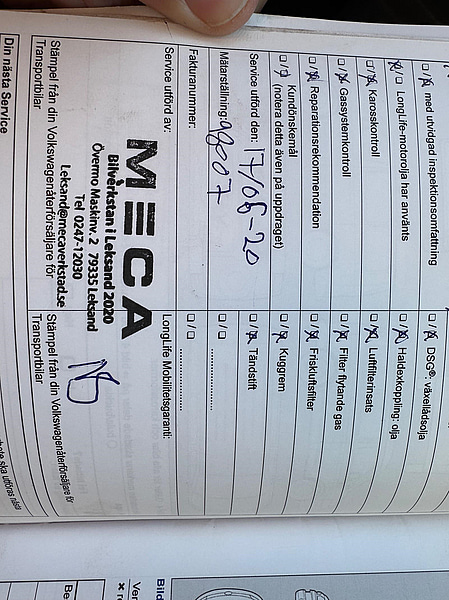 □/☒ med utvidgad inspektionsomfattning
☒/□ LongLife-motorolja har använts
□/☒ Karosskontroll
□/☒ Gassystemkontroll
□/☒ Reparationsrekommendation
□/☒ Kundönskemål
(notera detta även på uppdraget)
Service utförd den: 17/08-20
Mätarställning: 98807
Fakturanummer:
Service utförd av:
MECA
Bilverkstan i Leksand 2020
Övermo Maskinv. 2 79335 Leksand
Tel 0247-12030
Leksand@mecaverkstad.se
Stämpel från din Volkswagenåterförsäljare för
Transportbilar
□/☒ DSG®: växellådsolja
□/☒ Haldexkoppling: olja
□/☒ Luftfilterinsats
□/☒ Filter flytande gas
□/☒ Friskluftsfilter
□/☒ Kuggrem
□/☒ Tändstift
□/□
□/□
LongLife Mobilitetsgaranti:
Stämpel från din Volkswagenåterförsäljare för
Transportbilar
Din nästa Service
ska utföras nästa
Bild